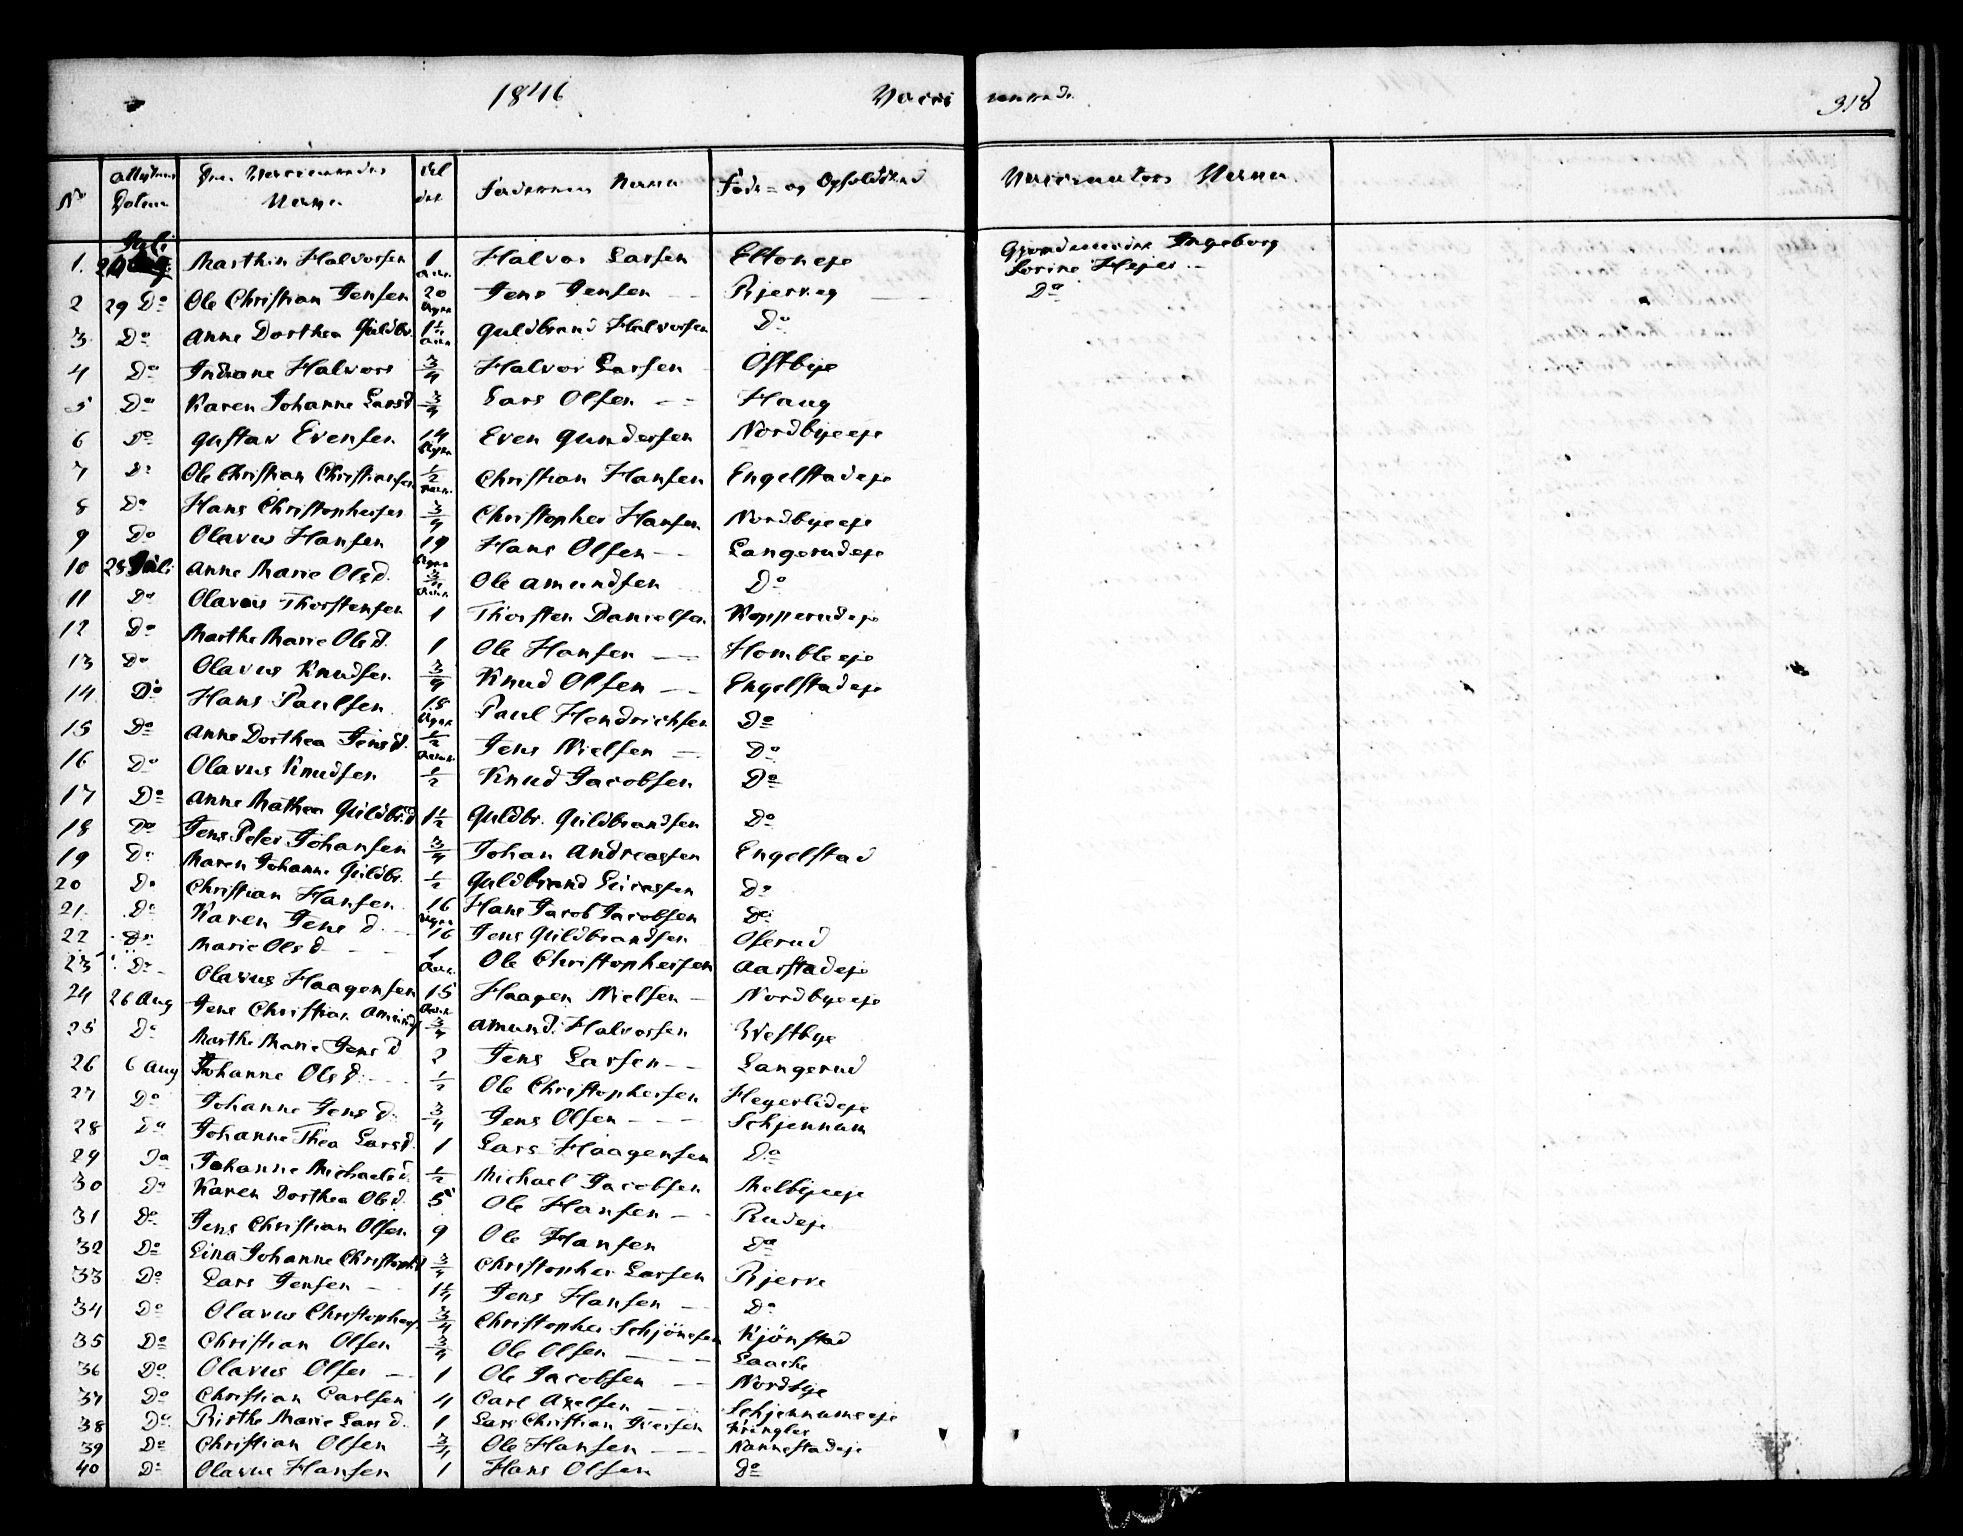 1846 Vacci nerede 318
No Attestens Datum Den Vaccineredes Navn Al der Faderens Navn Føde= og Opholdsted Vaccinateurs Navn.
Juli
1. 29 Marthin Halvorsen 1 Aar. Halvor Larsen Eltoneje Gjordemoder Ingeborg Sorine Hejer
2 29 Do Ole Christian Jensen 20 Uger Jens Jensen Bjerkeg Do
3 Do Anne Dorthea Guldbr. 1 1/2 Aar Guldbrand Halvorsen Do
4 Do Indiane Halvors 3/4 Halvor Larsen Østbye
5 Do Karen Johanne Larsd 3/4 Lars Olsen Haug
6 Do Gustav Evensen 14 Uger Even Gundersen Nordbyeeje
7 Do Ole Christian Christiansen 1/2 Aar Christian Hansen Engelstadeje
8 Do Hans Christophersen 3/4 Christopher Hansen Nordbyeeje
9 Do Olavus Hansen 19 Uger Hans Olsen Langerudeje
10 28 Juli Anne Marie Olsd. 3/4 Aar Ole Amundsen Do
11 Do Olavus Thorstensen 1 Thorsten Danielsen Kopperudeje
12 Do Marthe Marie Olsd. 1 Ole Hansen Hombleeje
13 Do Olavus Knudsen 3/4 Knud Olsen Engelstadeje
14 Do Hans Paulsen 18 Uger Paul Hendrichsen Do
15 Do Anne Dorthea Jensd. 1/2 Aar Jens Nielsen Do
16 Do Olavus Knudsen 1/2 Knud Jacobsen Do
17 Do Anne Mathea Guldbr.d 1 1/2 Guldbr. Guldbrandsen Do
18 Do Jens Peter Johansen 3/4 Johan Andreassen Engelstad
19 Do Maren Johanne Guldbr. 1/2 Guldbrand Lucassen Do
20 Do Christian Hansen 16 Uger Hans Jacob Jacobsen Do
21. Do Karen Jens d. 16 Jens Guldbrandsen Oserud
22 Do Marie Ols d 1 Aar. Ole Christophersen Aarstadeje
23 Do Olavus Haagensen 15 Haagen Nielsen Nordbyeeje
24 26 Aug Jens Christian Amunds 3/4 Amund Halvorsen Westbye
25 Do Marthe Marie Jens d 2 Jens Larsen Langerud
26 6 Aug Johanne Ols d. 1/2 Ole Christophersen Hegerlideje
27 Do Johanne Jens d. 3/4 Jens Olsen Schjennum
28 Do Johanne Thea Larsd. 1 Lars Haagensen Do
29 Do Johanne Michaelsd. 1/2 Michael Jacobsen Melbyeeje
30 Do Karen Dorthea Olsd. 5 Ole Hansen Rudeje
31 Do Jens Christian Olsen 9 Ole Hansen Do
32 Do Lina Johanne Christophd 3/4 Christopher Larsen Bjerke
33 Do Lars Jensen 1 1/4 Jens Hansen Do
34 Do Olavus Christophers. 3/4 Christopher Schjönesen Kjönstad
35 Do Christian Olsen 3/4 Ole Olsen Laache
36 Do Olavus Olsen 1 Ole Jacobsen Nordbye
37 Do Christian Carlsen 4 Carl Axelsen Schjennumseje
38 Do Birthe Marie Lars d. 1 Lars Christian Iversen Kringler
39 Do Christian Olsen 3/4 Ole Hansen Nannestadeje
40 Do Olavus Hansen 1 Hans Olsen Do